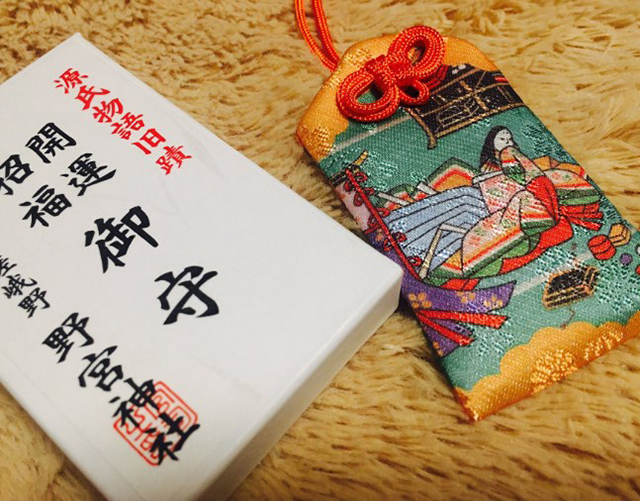 源氏物語旧蹟
開運
招福
御守
嵯峨野
野宮神社